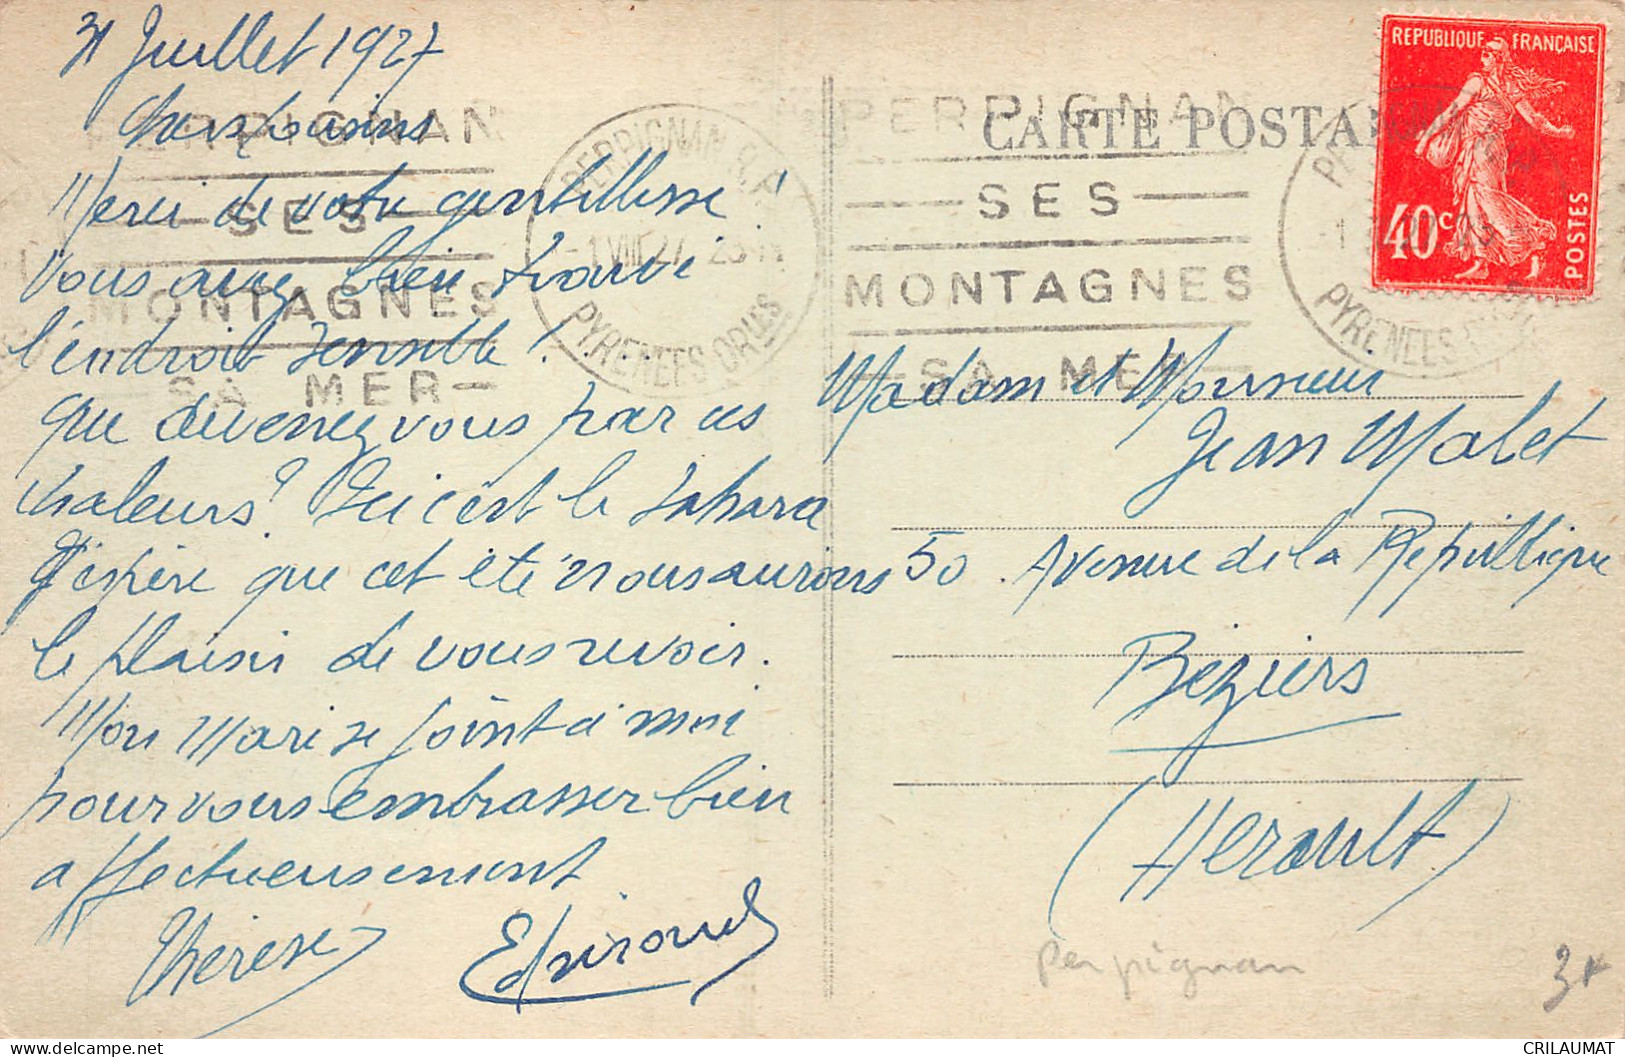 31 Juillet 1927
Chers Cousins
Merci de votre gentillesse !
Vous avez bien trouvé
l'endroit sensible !
Que devenez vous par ces
chaleurs ? Ici c'est le Sahara
J'espère que cet été nous aurons
le plaisir de vous revoir.
Mon Mari se joint à moi
pour vous embrasser bien
affectueusement
Thérèse
PERPIGNAN
SES
MONTAGNES
SA MER
PERPIGNAN R.P.
-1 VIII 27
PYRENEES ORLES
CARTE POSTA
PERPIGNAN
SES
MONTAGNES
SA MER
PYRENEES
REPUBLIQUE FRANÇAISE
40c
POSTES
Madame et Monsieur
Jean Malet
50 Avenue de la République
Béziers
(Hérault)
Perpignan
CRILAUMAT